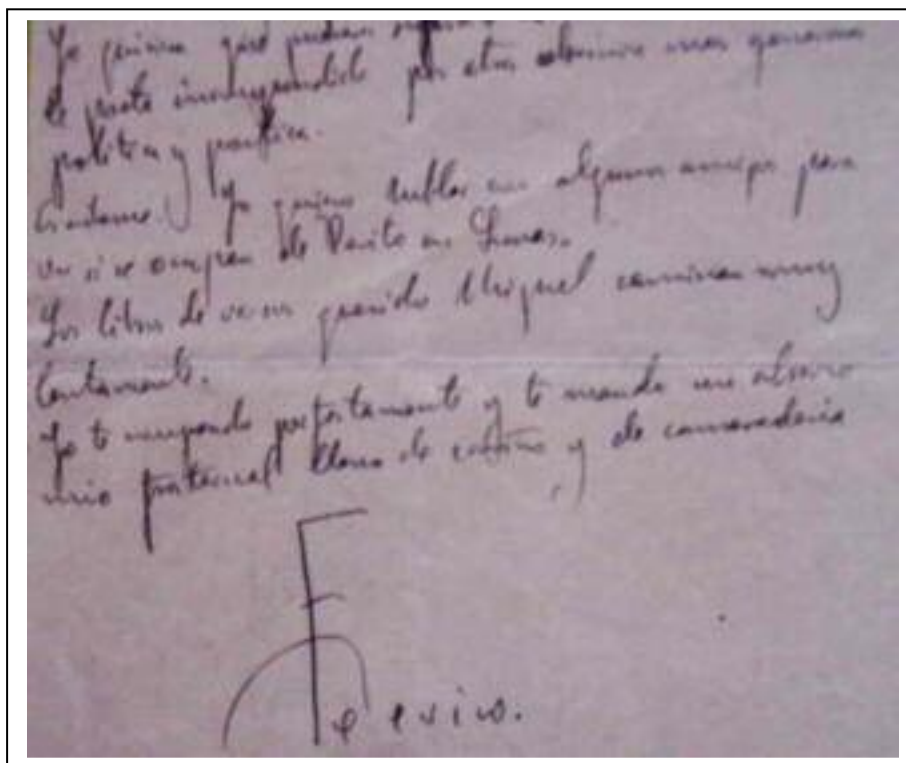 Yo quisiera que pudieras
de poeta incomprendido por otra obsesión más generosa
política y poética.
Yo quiero hablar con algunos amigos para
ver si se ocupan de Perito en Lunas.
Los libros de versos querido Miguel caminan muy
lentamente.
Yo te comprendo perfectamente y te mando un abrazo
mío fraternal lleno de cariño y de camaradería
Federico.